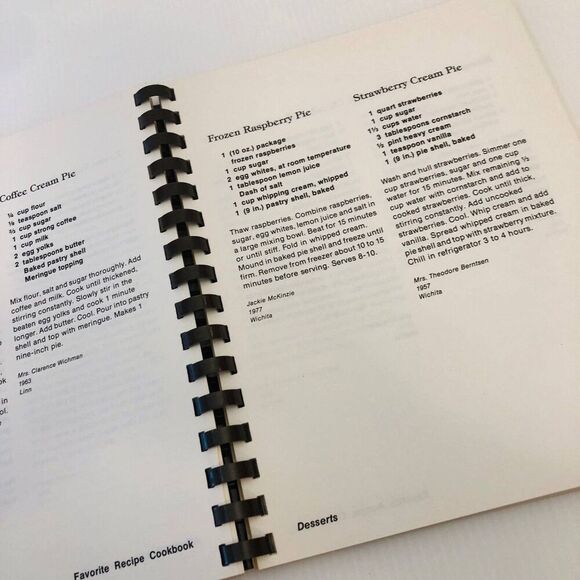 Coffee Cream Pie
¼ cup flour
⅛ teaspoon salt
⅔ cup sugar
1 cup strong coffee
1 cup milk
2 egg yolks
2 tablespoons butter
Baked pastry shell
Meringue topping
Mix flour, salt and sugar thoroughly. Add
coffee and milk. Cook until thickened,
stirring constantly. Slowly stir in the
beaten egg yolks and cook 1 minute
longer. Add butter. Cool. Pour into pastry
shell and top with meringue. Makes 1
nine-inch pie.
Mrs. Clarence Wichman
1963
Linn
Favorite Recipe Cookbook
Frozen Raspberry Pie
1 (10 oz.) package
frozen raspberries
1 cup sugar
2 egg whites, at room temperature
1 tablespoon lemon juice
Dash of salt
1 cup whipping cream, whipped
1 (9 in.) pastry shell, baked
Thaw raspberries. Combine raspberries,
sugar, egg whites, lemon juice and salt in
a large mixing bowl. Beat for 15 minutes
or until stiff. Fold in whipped cream.
Mound in baked pie shell and freeze until
firm. Remove from freezer about 10 to 15
minutes before serving. Serves 8-10.
Jackie McKinzie
1977
Wichita
Strawberry Cream Pie
1 quart strawberries
1 cup sugar
1½ cups water
3 tablespoons cornstarch
½ pint heavy cream
1 teaspoon vanilla
1 (9 in.) pie shell, baked
Wash and hull strawberries. Simmer one
cup strawberries, sugar and one cup
water for 15 minutes. Mix remaining ½
cup water with cornstarch and add to
cooked strawberries. Cook until thick,
stirring constantly. Add uncooked
strawberries. Cool. Whip cream and add
vanilla. Spread whipped cream in baked
pie shell and top with strawberry mixture.
Chill in refrigerator 3 to 4 hours.
Mrs. Theodore Berntsen
1957
Wichita
Desserts